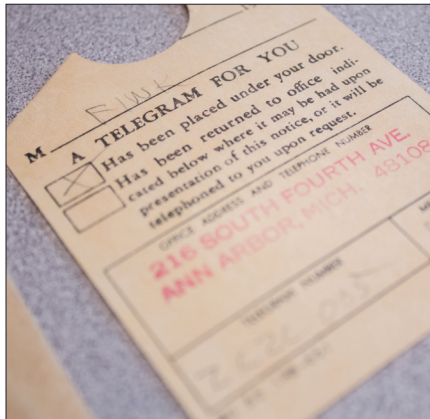 M FINK
A TELEGRAM FOR YOU
Has been placed under your door.
Has been returned to office indi-
cated below where it may be had upon
presentation of this notice, or it will be
telephoned to you upon request.
OFFICE ADDRESS AND TELEPHONE NUMBER
216 SOUTH FOURTH AVE.
ANN ARBOR, MICH. 48108
TELEPHONE NUMBER